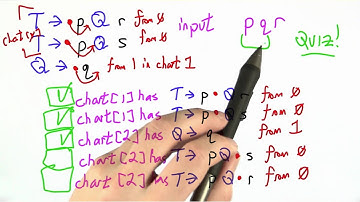 T → • p Q r from 0 input p q r
T → • p Q s from 0 QUIZ!
Q → • q from 1 in chart 1
chart[1] has T → p • Q r from 0
chart[1] has T → p • Q s from 0
chart[2] has Q → q • from 1
chart[2] has T → p Q • s from 0
chart[2] has T → p Q • r from 0